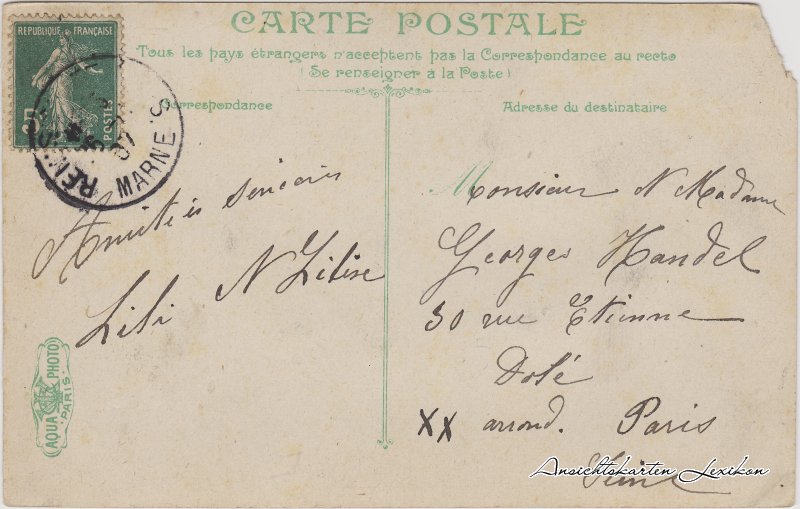 CARTE POSTALE
Tous les pays étrangers n'acceptent pas la Correspondance au recto
(Se renseigner à la Poste)
RÉPUBLIQUE FRANÇAISE
POSTES
MARNE
Correspondance
Adresse du destinataire
Amitiés sincères
Lili
Monsieur & Madame
Georges Handel
30 rue Etienne
Dolé
XX arrond. Paris
Seine
AQUA PHOTO
PARIS
Ansichtskarten Lexikon